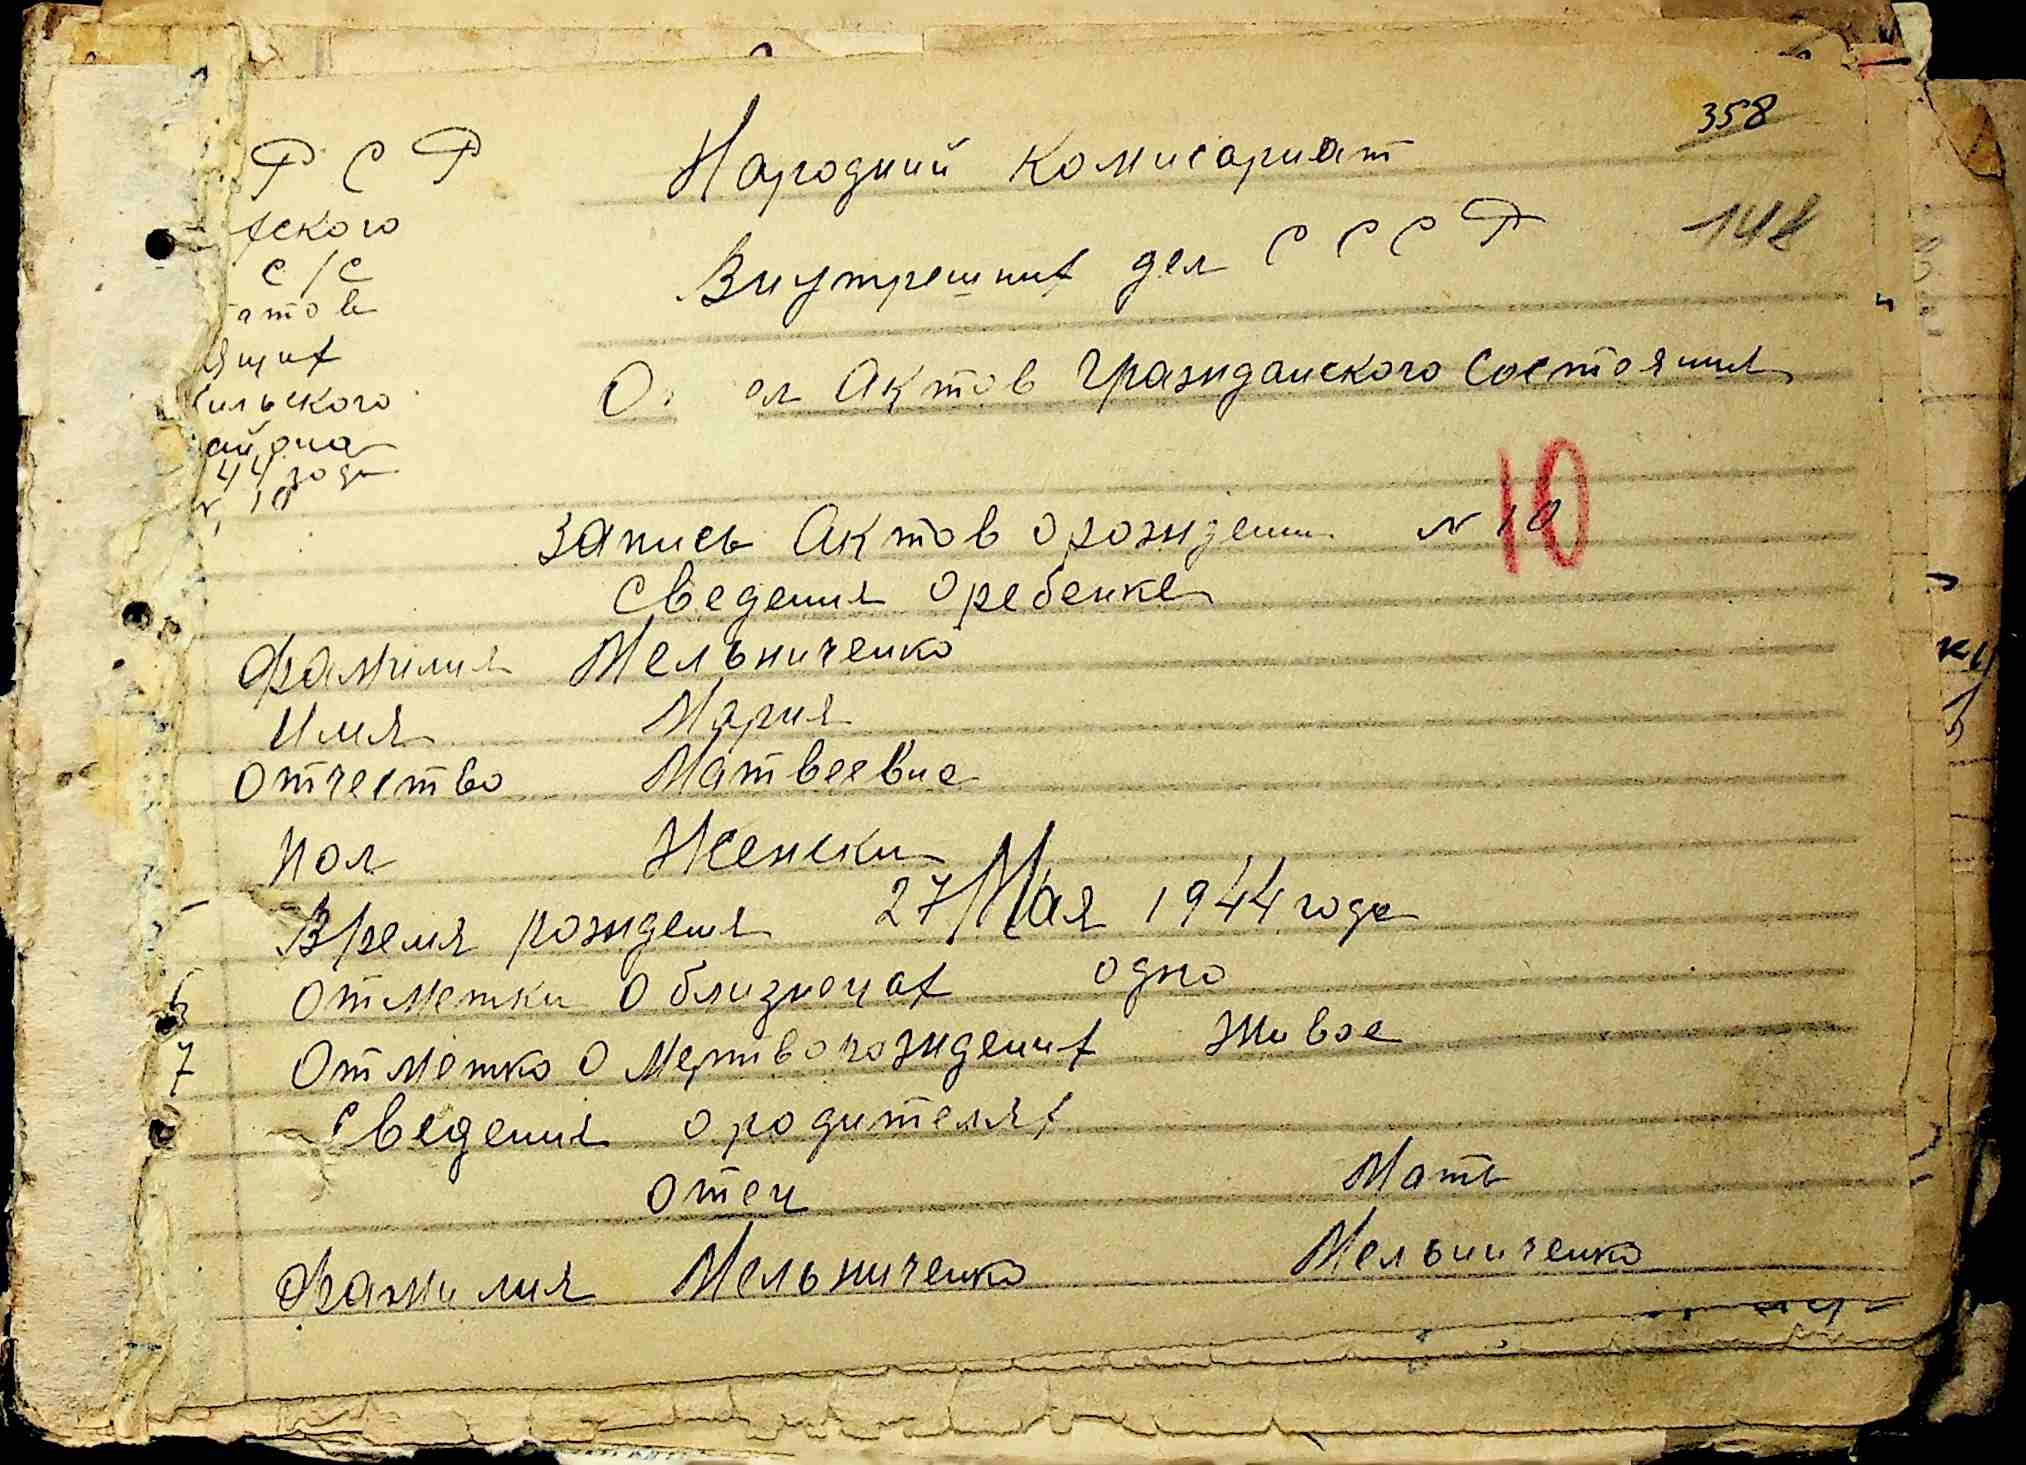 358
148
Р С Р
ского
с/с
ильского
44 года
N 10
Народний комисариат
Внутрешних дел СССР
Актов гражданского состояния
Запись Актов о рождени N 10
10
Сведения о ребенке
Фамилия Мельниченко
Имя Мария
Отчество Матвеевна
Пол Женски
Время рождения 27 Мая 1944 года
6 Отметки о близнецах одно
7 Отметка о мертворождених живое
Сведения о родителях
Отец Мать
Фамилия Мельниченко Мельниченко